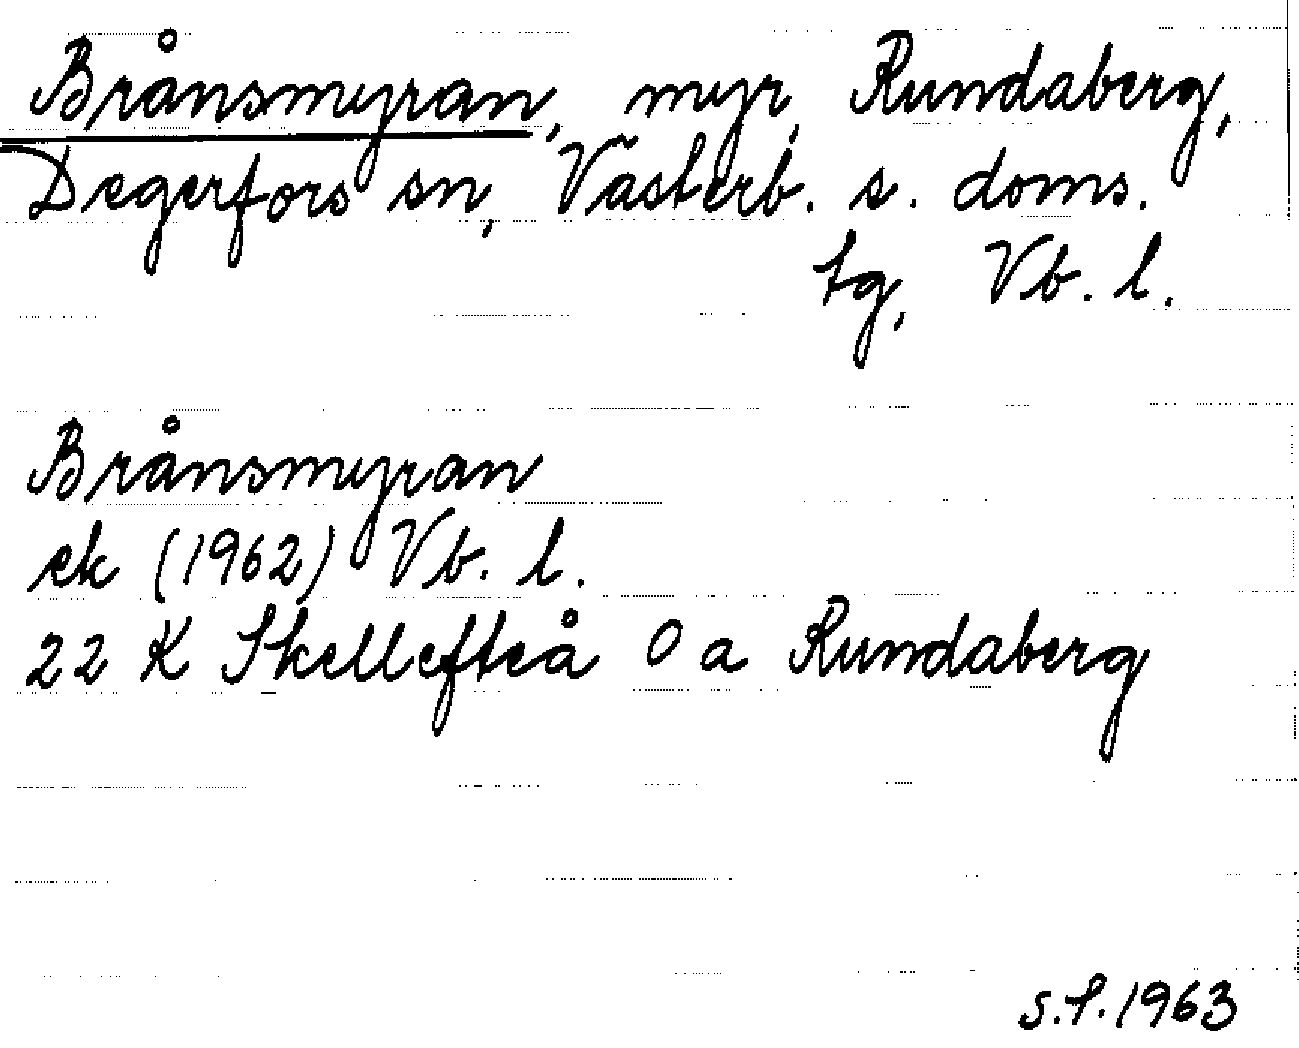 Brånsmyran, myr, Rundaberg,
Degerfors sn, Västerb. s. doms.
tg, Vb. l.
Brånsmyran
ek (1962) Vb. l.
22 K Skellefteå O a Rundaberg
S.P. 1963